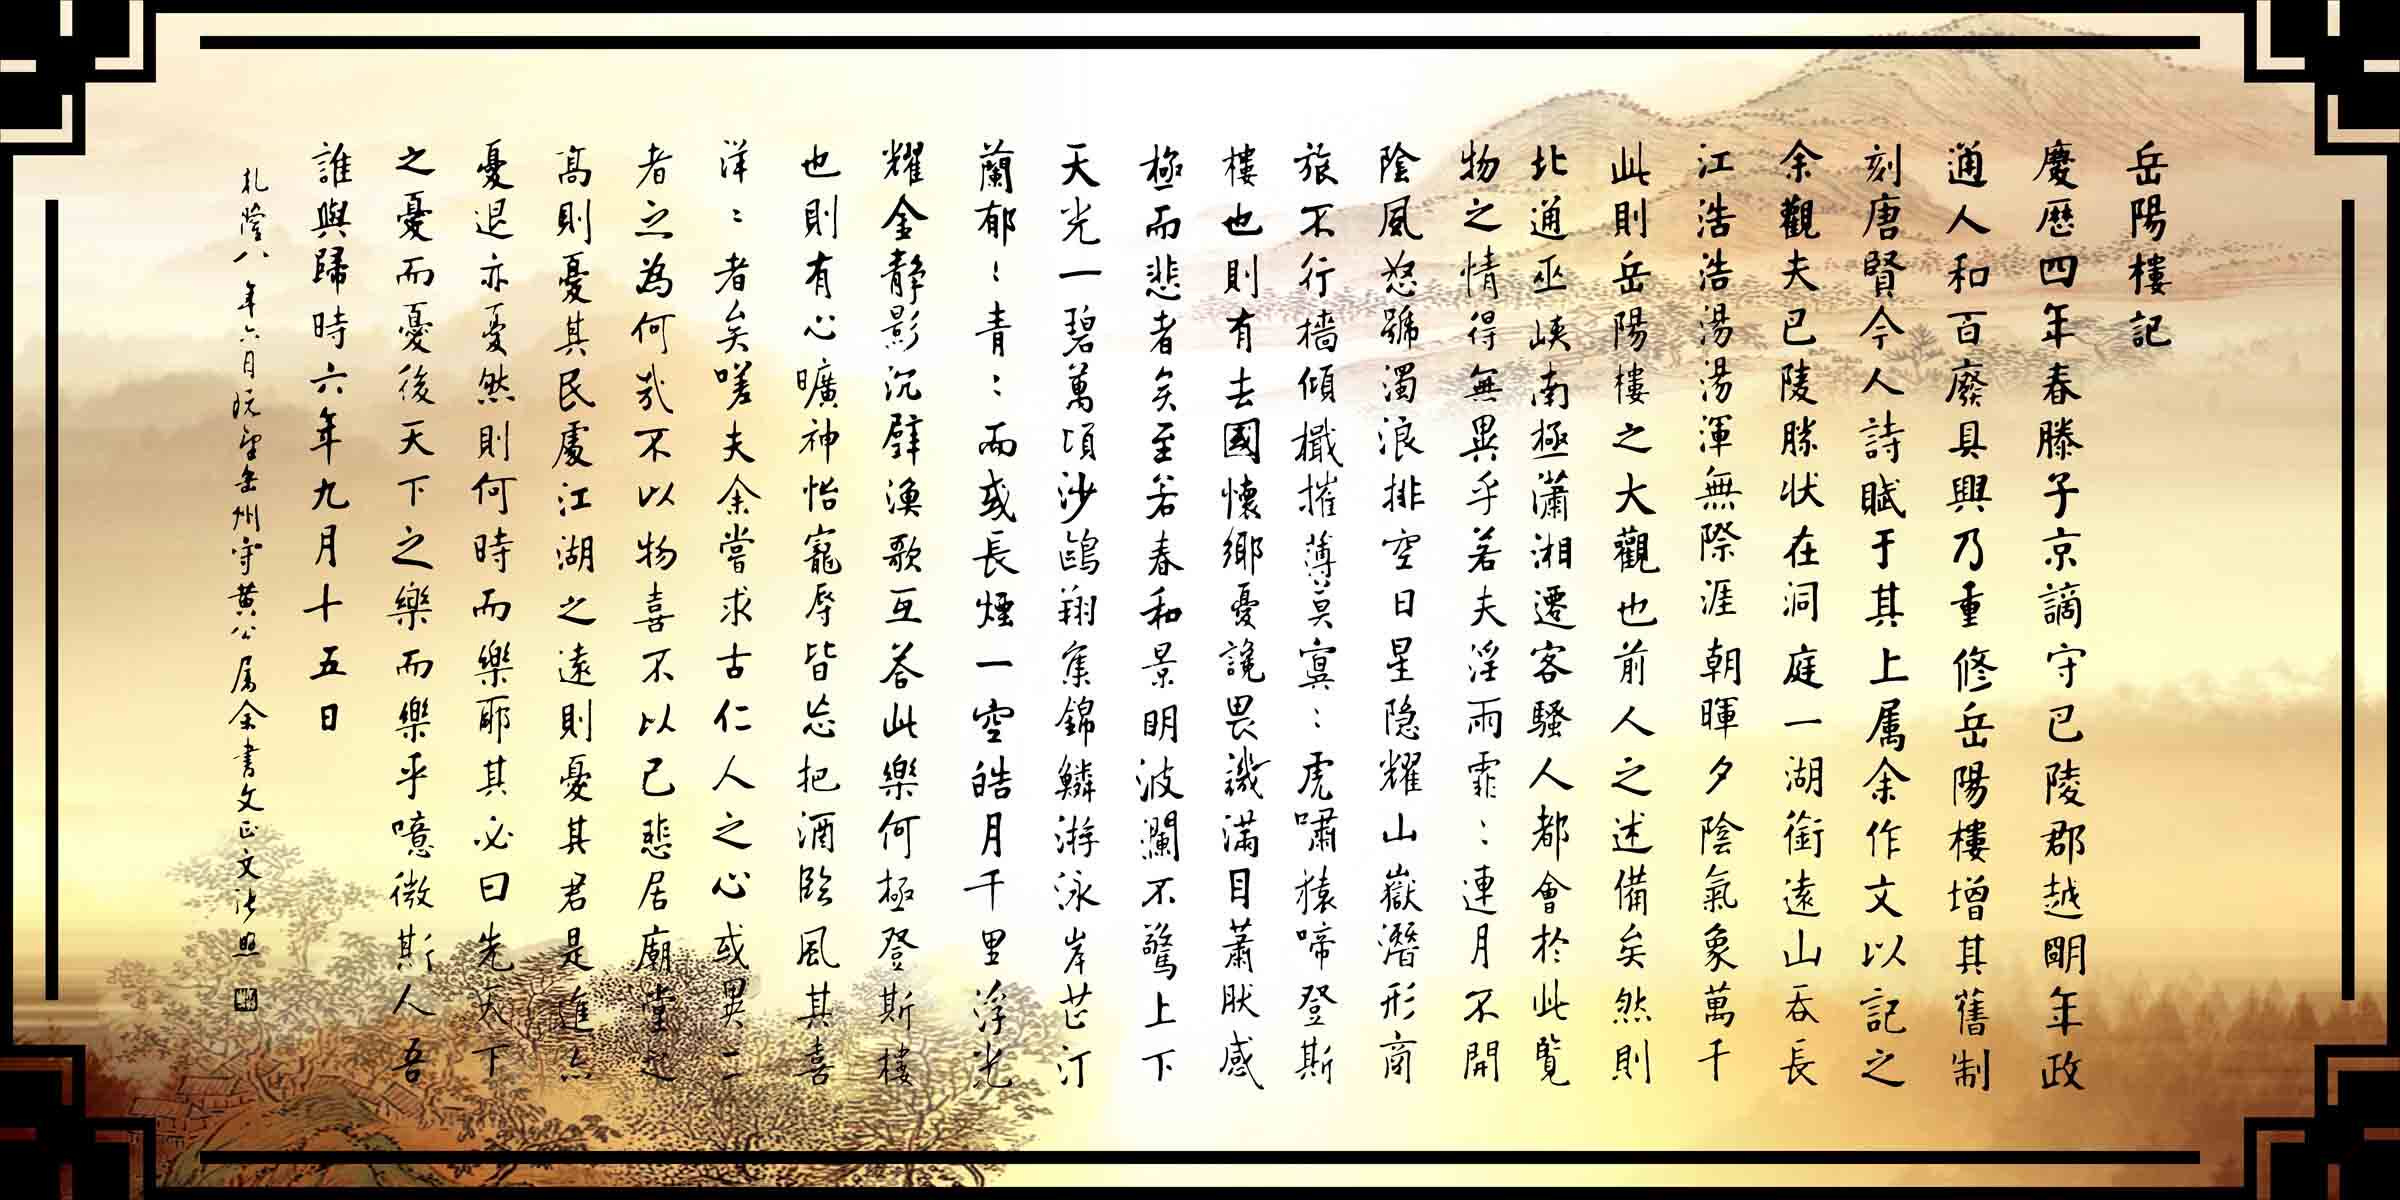 岳陽樓記
慶歷四年春滕子京謫守巴陵郡越明年政
通人和百廢具興乃重修岳陽樓增其舊制
刻唐賢今人詩賦于其上属余作文以記之
余觀夫巴陵勝状在洞庭一湖銜遠山吞長
江浩浩湯湯渾無際涯朝暉夕陰氣象萬千
此則岳陽樓之大觀也前人之述備矣然則
北通巫峽南極瀟湘遷客騷人都會於此覧
物之情得無異乎若夫淫雨霏〻連月不開
陰風怒號濁浪排空日星隐耀山嶽潛形商
旅不行檣傾檝摧薄莫㝠〻虎嘯猿啼登斯
樓也則有去國懷鄉憂讒畏譏滿目蕭肰感
極而悲者矣至若春和景明波瀾不驚上下
天光一碧萬頃沙鷗翔集錦鱗游泳岸芷汀
蘭郁〻青〻而或長煙一空皓月千里浮光
耀金静影沉璧漁歌互荅此樂何極登斯樓
也則有心曠神怡寵辱皆忘把酒臨風其喜
洋〻者矣嗟夫余嘗求古仁人之心或異二
者之為何哉不以物喜不以己悲居廟堂之
高則憂其民處江湖之遠則憂其君是進亦
憂退亦憂然則何時而樂耶其必曰先天下
之憂而憂後天下之樂而樂乎噫微斯人吾
誰與歸時六年九月十五日
乾隆八年六月既望岳州守黄公属余書文正文張照